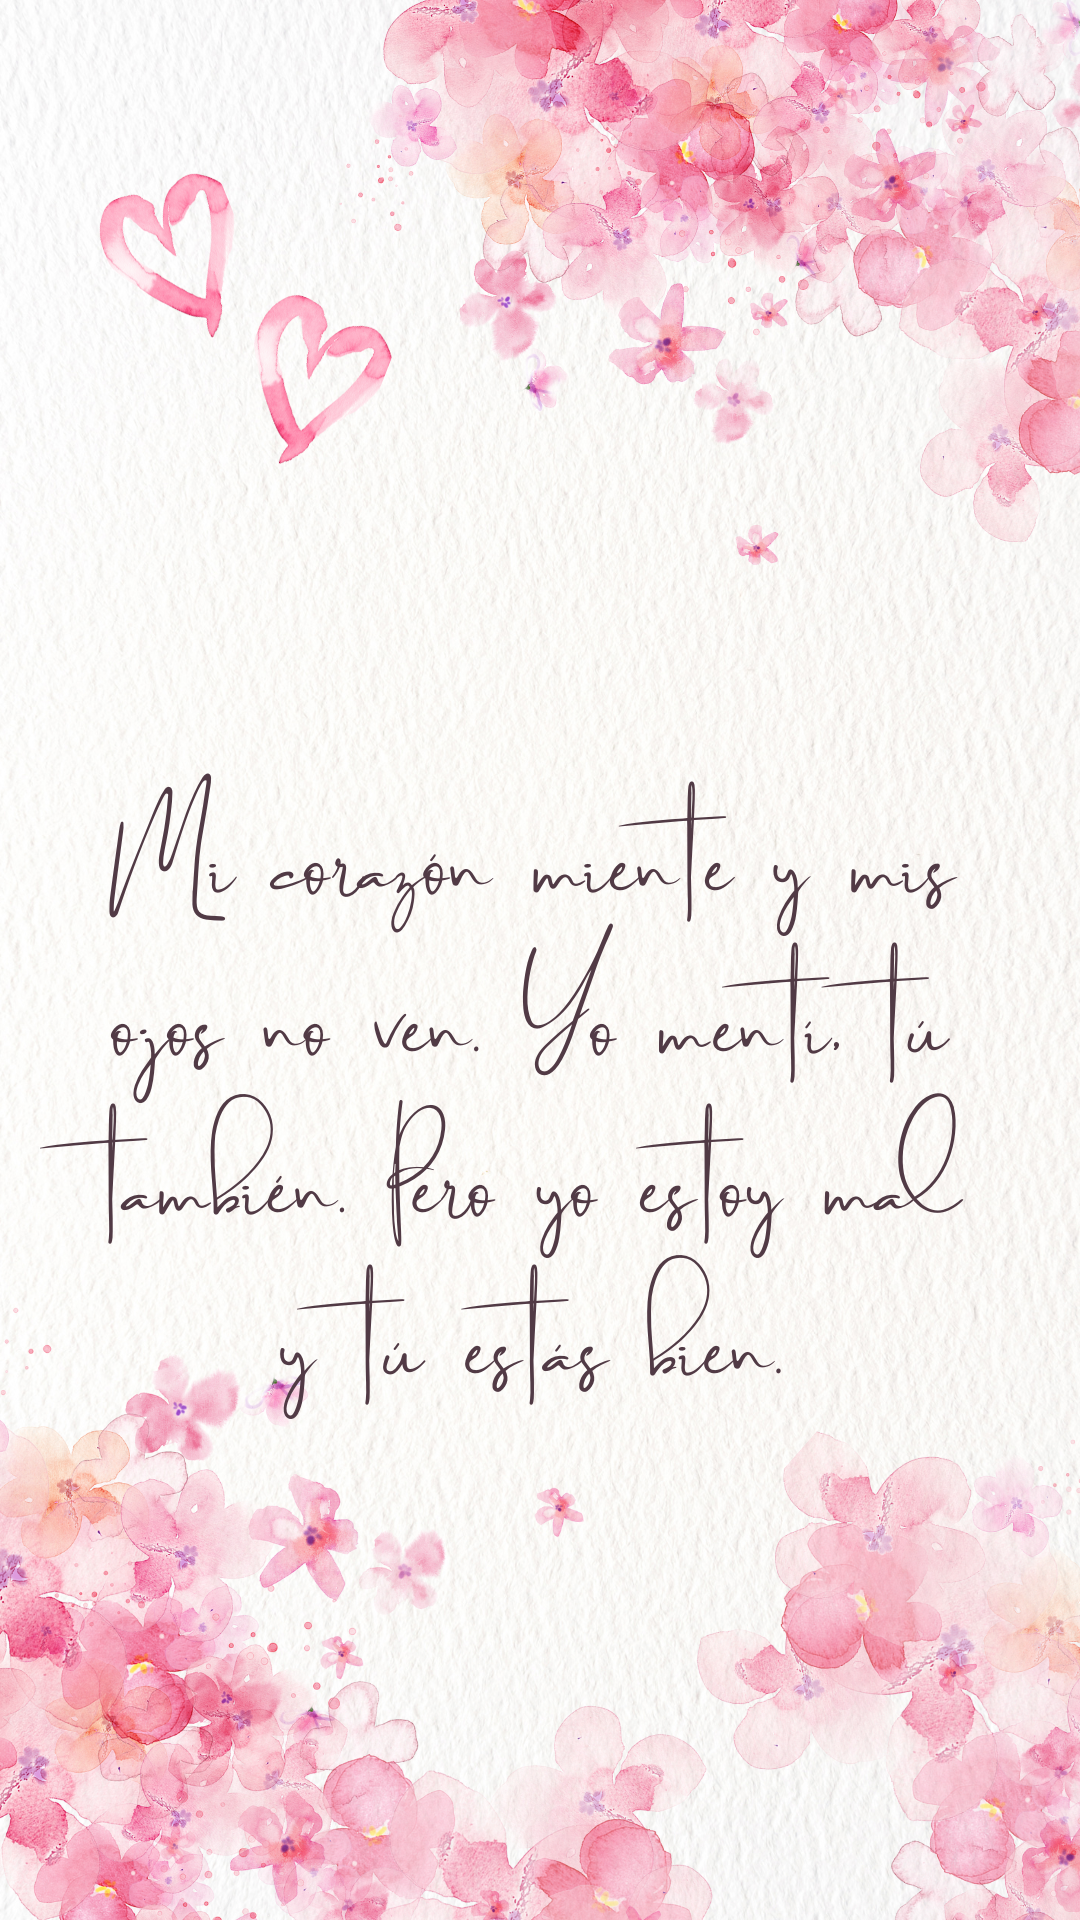 Mi corazón miente y mis
ojos no ven. Yo mentí, tú
también. Pero yo estoy mal
y tú estás bien.